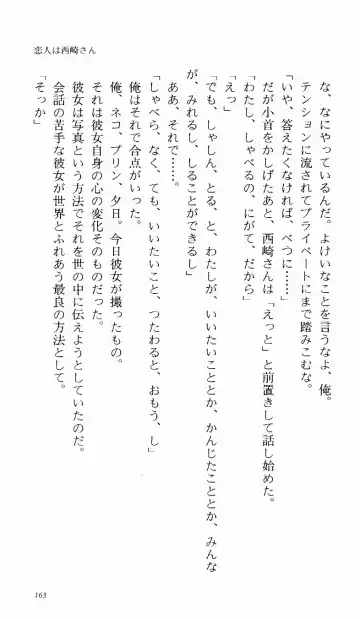 恋人は西崎さん
な、なにやっているんだ。よけいなことを言うなよ、俺。
テンションに流されてプライベートにまで踏みこむな。
「いや、答えたくなければ、べつに……」
だが小首をかしげたあと、西崎さんは「えっと」と前置きして話し始めた。
「わたし、しゃべるの、にがて、だから」
「えっ」
「でも、しゃしん、とる、と、わたしが、いいたいこととか、かんじたこととか、みんな
が、みれるし、しることができるし」
ああ、それで……。
「しゃべら、なく、ても、いいたいこと、つたわると、おもう、し」
俺はそれで合点がいった。
俺、ネコ、プリン、夕日。今日彼女が撮ったもの。
それは彼女自身の心の変化そのものだった。
彼女は写真という方法でそれを世の中に伝えようとしていたのだ。
会話の苦手な彼女が世界とふれあう最良の方法として。
「そっか」
163